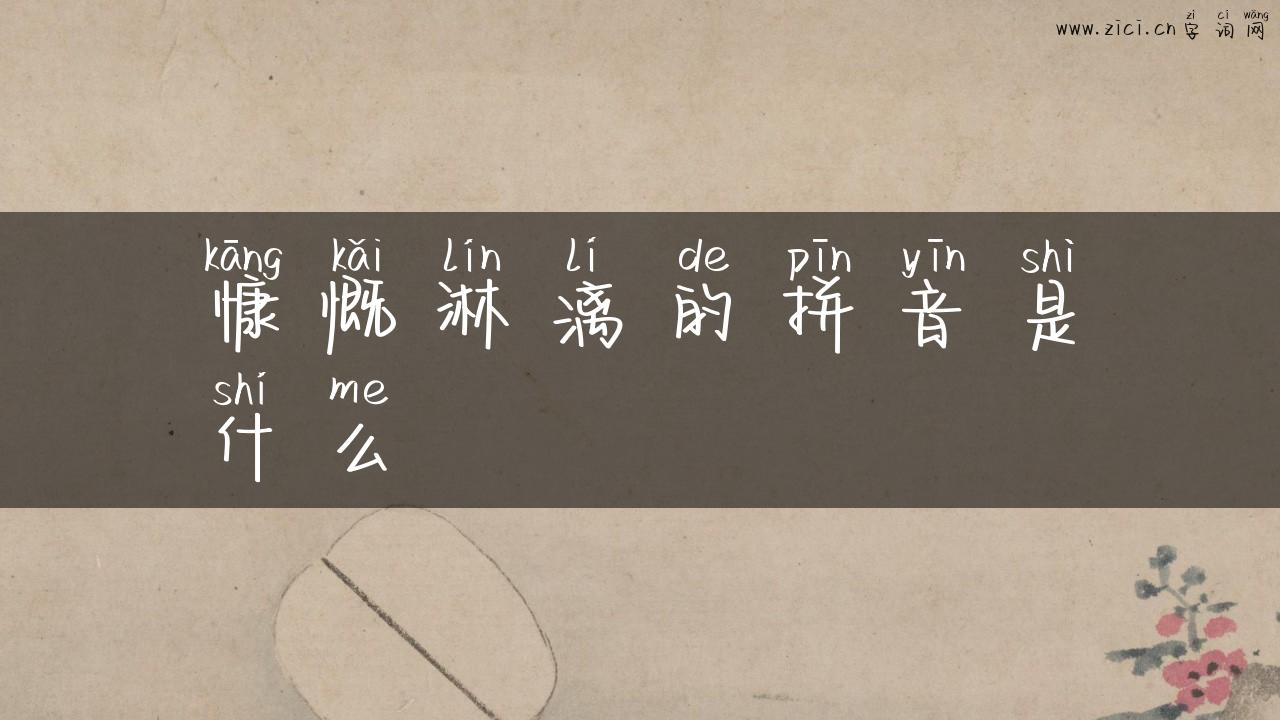 zì cí wǎng
www.zici.cn 字词网
kāng kǎi lín lí de pīn yīn shì
慷慨淋漓的拼音是
shí me
什么